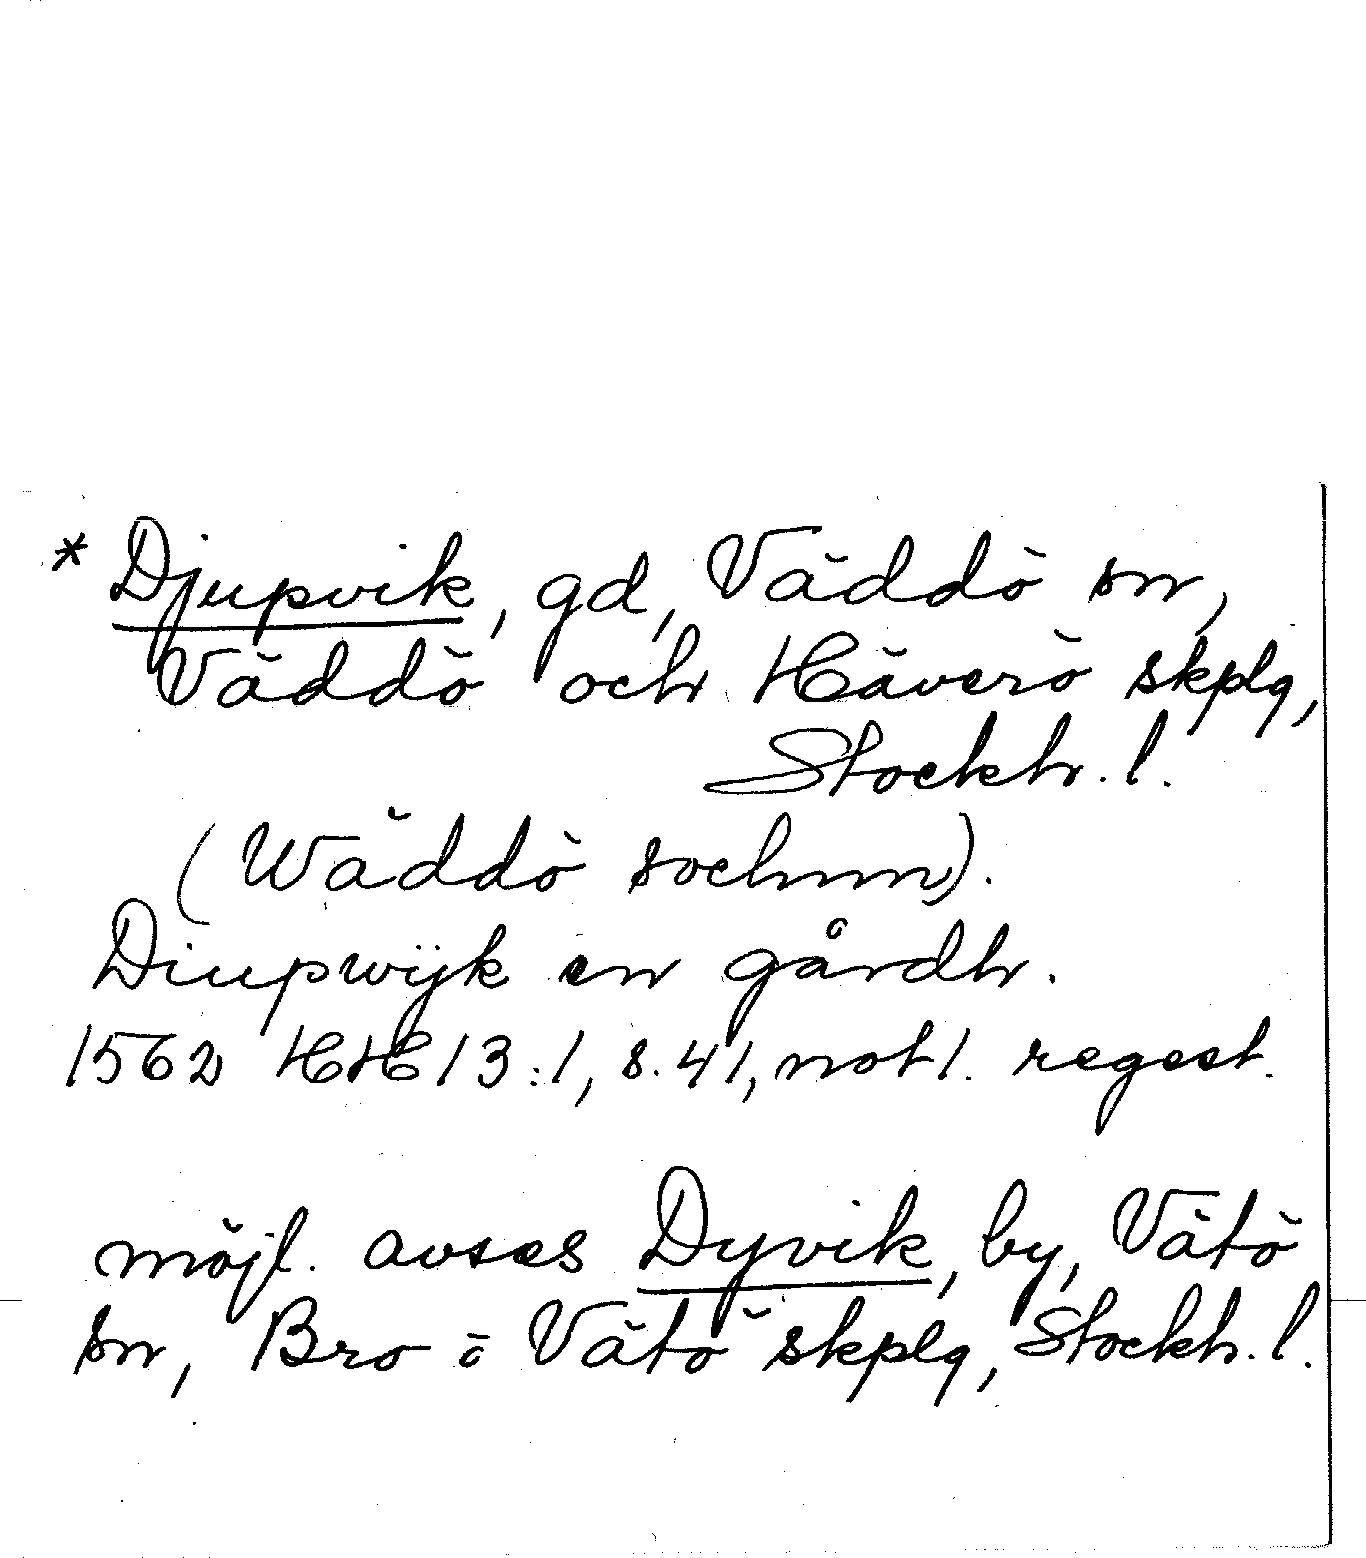 * Djupvik, gd, Väddö sn,
Väddö och Häverö skplg,
Stockh. l.
(Wäddö sochnn).
Diupwijk en gårdh.
1562 HH 13:1, s. 41, not 1. regest.
möjl. avses Dyvik, by, Vätö
sn, Bro o Vätö skplg, Stockh. l.